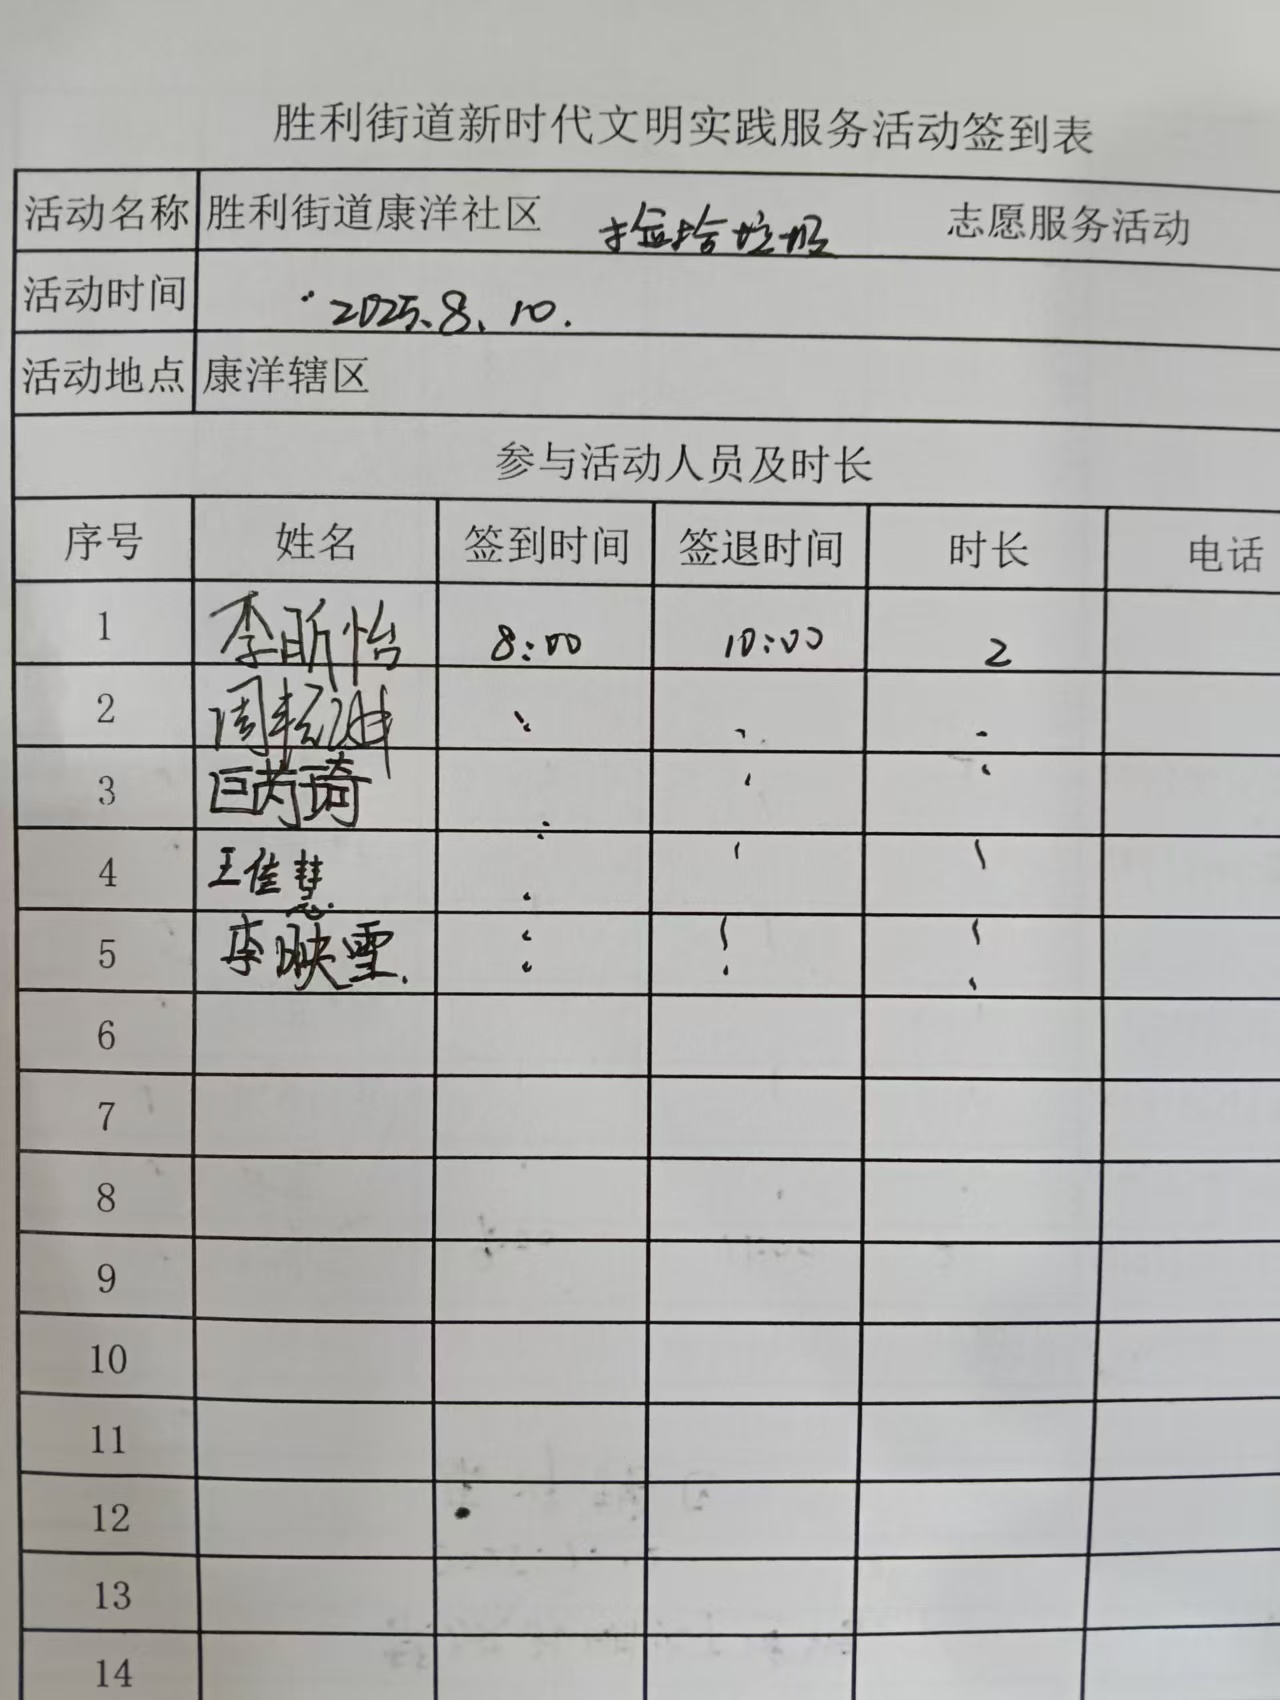 胜利街道新时代文明实践服务活动签到表
活动名称 胜利街道康洋社区 捡拾垃圾 志愿服务活动
活动时间 2025.8.10.
活动地点 康洋辖区
参与活动人员及时长
序号 姓名 签到时间 签退时间 时长 电话
1 李昕怡 8:00 10:00 2
2 周耘琳
3 巨芮琦
4 王佳慧
5 李映雪.
6
7
8
9
10
11
12
13
14